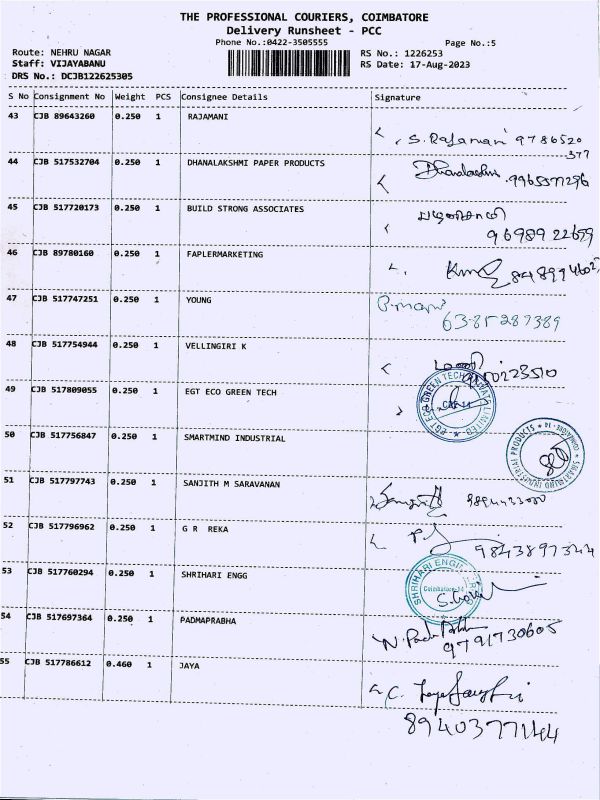 THE PROFESSIONAL COURIERS, COIMBATORE
Delivery Runsheet - PCC
Phone No.:0422-3505555
Page No.:5
Route: NEHRU NAGAR
RS No.: 1226253
Staff: VIJAYABANU
RS Date: 17-Aug-2023
DRS No.: DCJB122625305
S No Consignment No Weight PCS Consignee Details Signature
43 CJB 89643260 0.250 1 RAJAMANI
S. Rajamani 9786520
377
44 CJB 517532704 0.250 1 DHANALAKSHMI PAPER PRODUCTS
45 CJB 517720173 0.250 1 BUILD STRONG ASSOCIATES
9698922659
46 CJB 89780160 0.250 1 FAPLERMARKETING
47 CJB 517747251 0.250 1 YOUNG
6385287389
48 CJB 517754944 0.250 1 VELLINGIRI K
மணி
49 CJB 517809055 0.250 1 EGT ECO GREEN TECH
EGT ECO GREEN TECH PRIVATE LIMITED
50 CJB 517756847 0.250 1 SMARTMIND INDUSTRIAL
SMARTMIND INDUSTRIAL PRODUCTS
COIMBATORE - 14
51 CJB 517797743 0.250 1 SANJITH M SARAVANAN
52 CJB 517796962 0.250 1 G R REKA
9843897344
53 CJB 517760294 0.250 1 SHRIHARI ENGG
SHRIHARI ENGINEERING
Coimbatore-14
54 CJB 517697364 0.250 1 PADMAPRABHA
9791730605
55 CJB 517786612 0.460 1 JAYA
8940377144